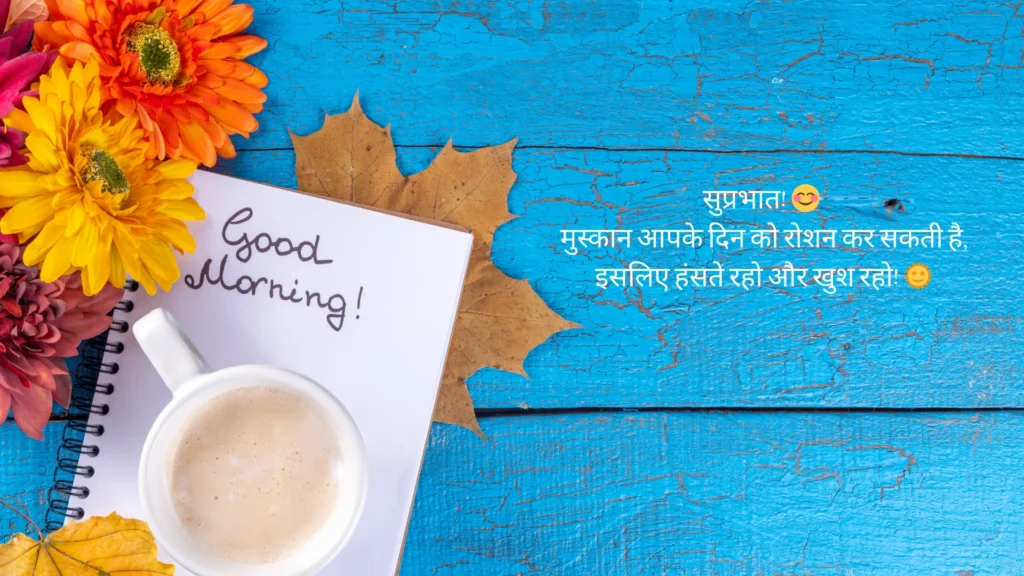 Good
Morning!
सुप्रभात! 😊
मुस्कान आपके दिन को रोशन कर सकती है,
इसलिए हंसते रहो और खुश रहो! 🙂